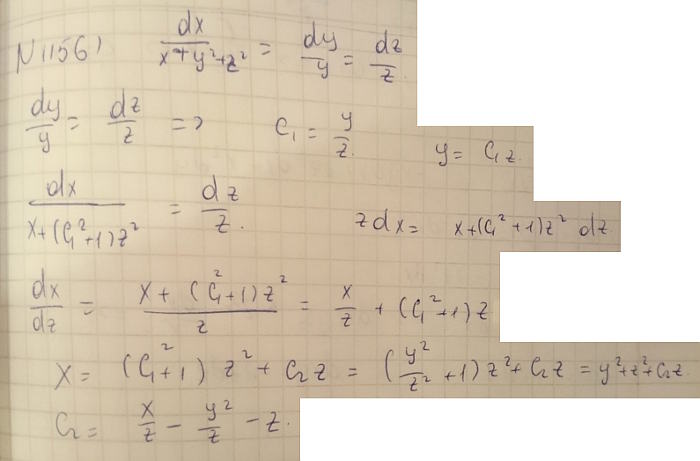 N 1156) dx/(x+y²+z²) = dy/y = dz/z.
dy/y = dz/z => C₁ = y/z. y = C₁z.
dx/(x+(C₁²+1)z²) = dz/z. zdx = x+(C₁²+1)z² dz.
dx/dz = (x+(C₁²+1)z²)/z = x/z + (C₁²+1)z
x = (C₁²+1)z² + C₂z = (y²/z²+1)z²+C₂z = y²+z²+C₂z.
C₂ = x/z - y²/z - z.